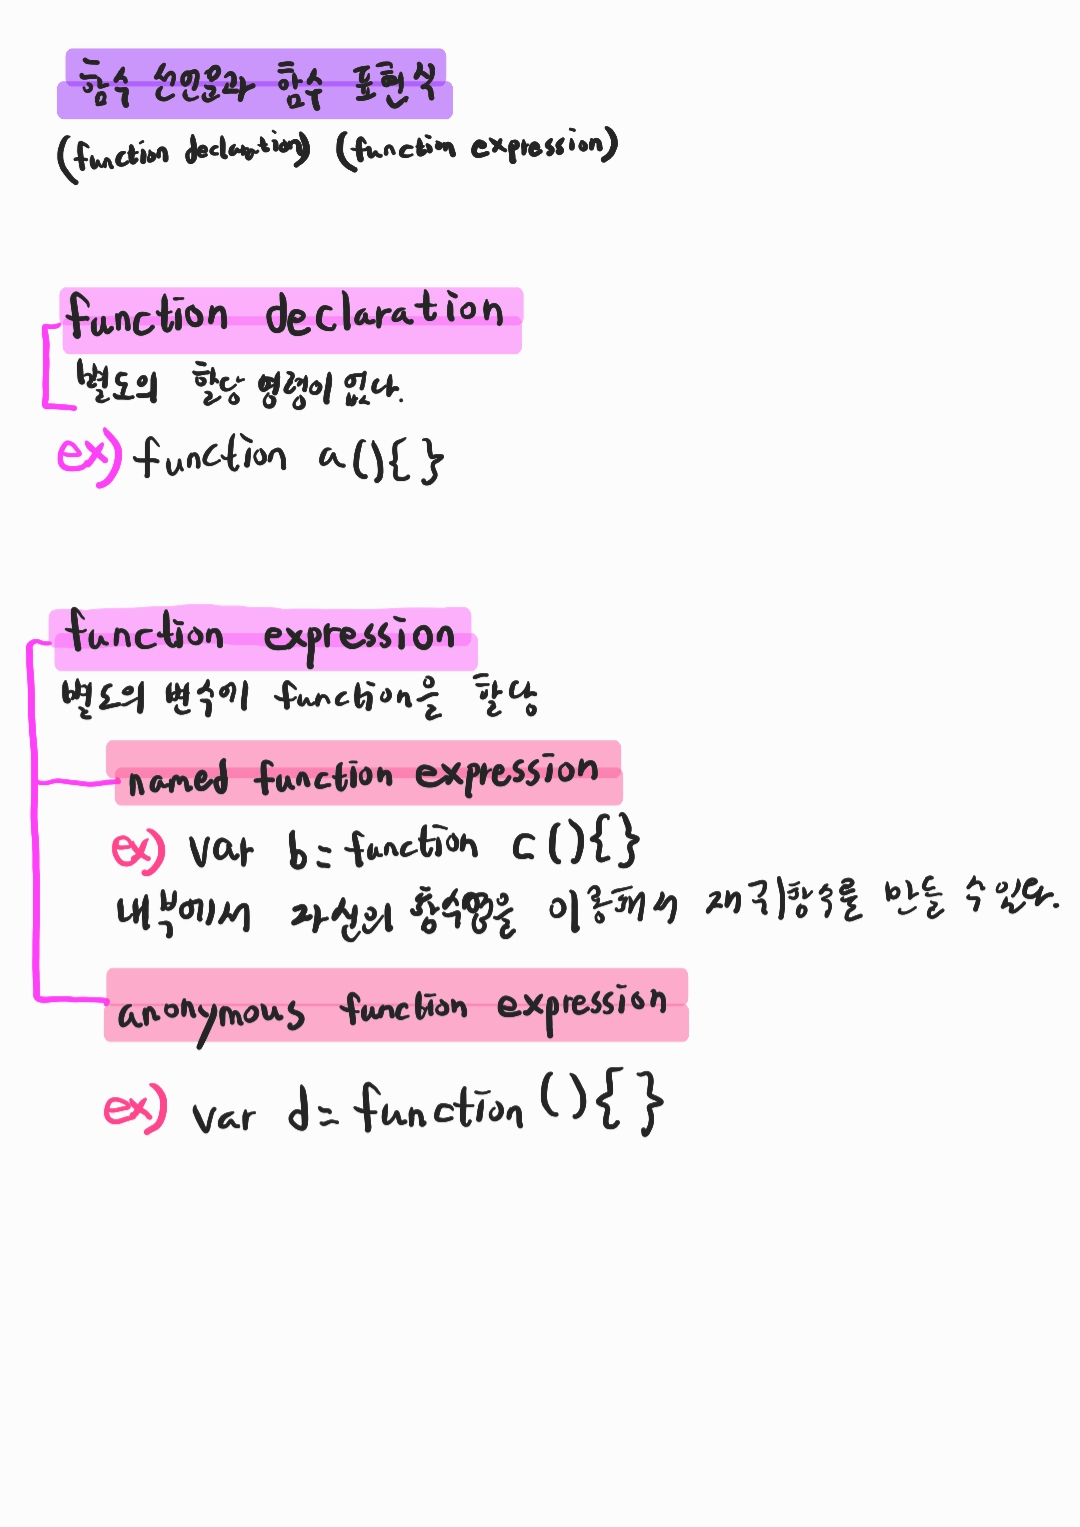 함수 선언문과 함수 표현식
(function declaration) (function expression)
function declaration
별도의 할당 명령이 없다.
ex) function a(){ }
function expression
별도의 변수에 function을 할당
named function expression
ex) var b = function c(){}
내부에서 자신의 함수명을 이용해서 재귀함수를 만들 수 있다.
anonymous function expression
ex) var d = function (){ }